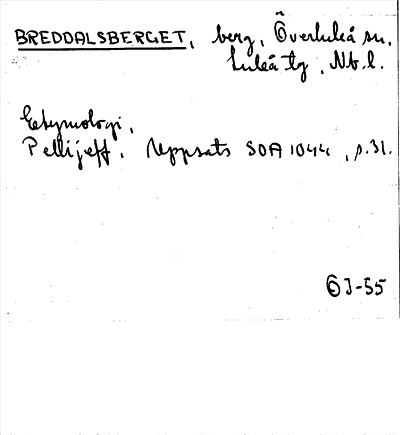 BREDDALSBERGET, berg, Överluleå sn,
Luleå tg, Nb. l.
Etymologi,
Pellijeff, Uppsats SOA 1044, p. 31.
6J-55